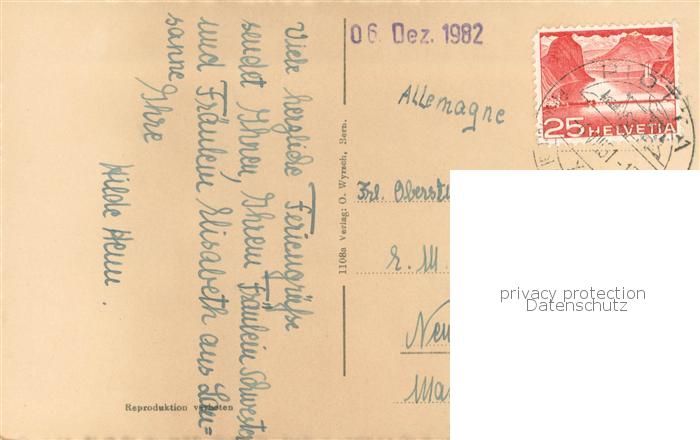 Viele herzliche Feriengrüße
sendet Ihnen, Ihrem Fräulein Schwester
und Fräulein Elisabeth aus Lau=
sanne Ihre
Hilde Henn.
Reproduktion verboten
1108a Verlag: O. Wyrsch, Bern.
06. Dez. 1982
Allemagne
25 HELVETIA
Frl. Oberstu
E. M.
Neu
Ma
privacy protection
Datenschutz